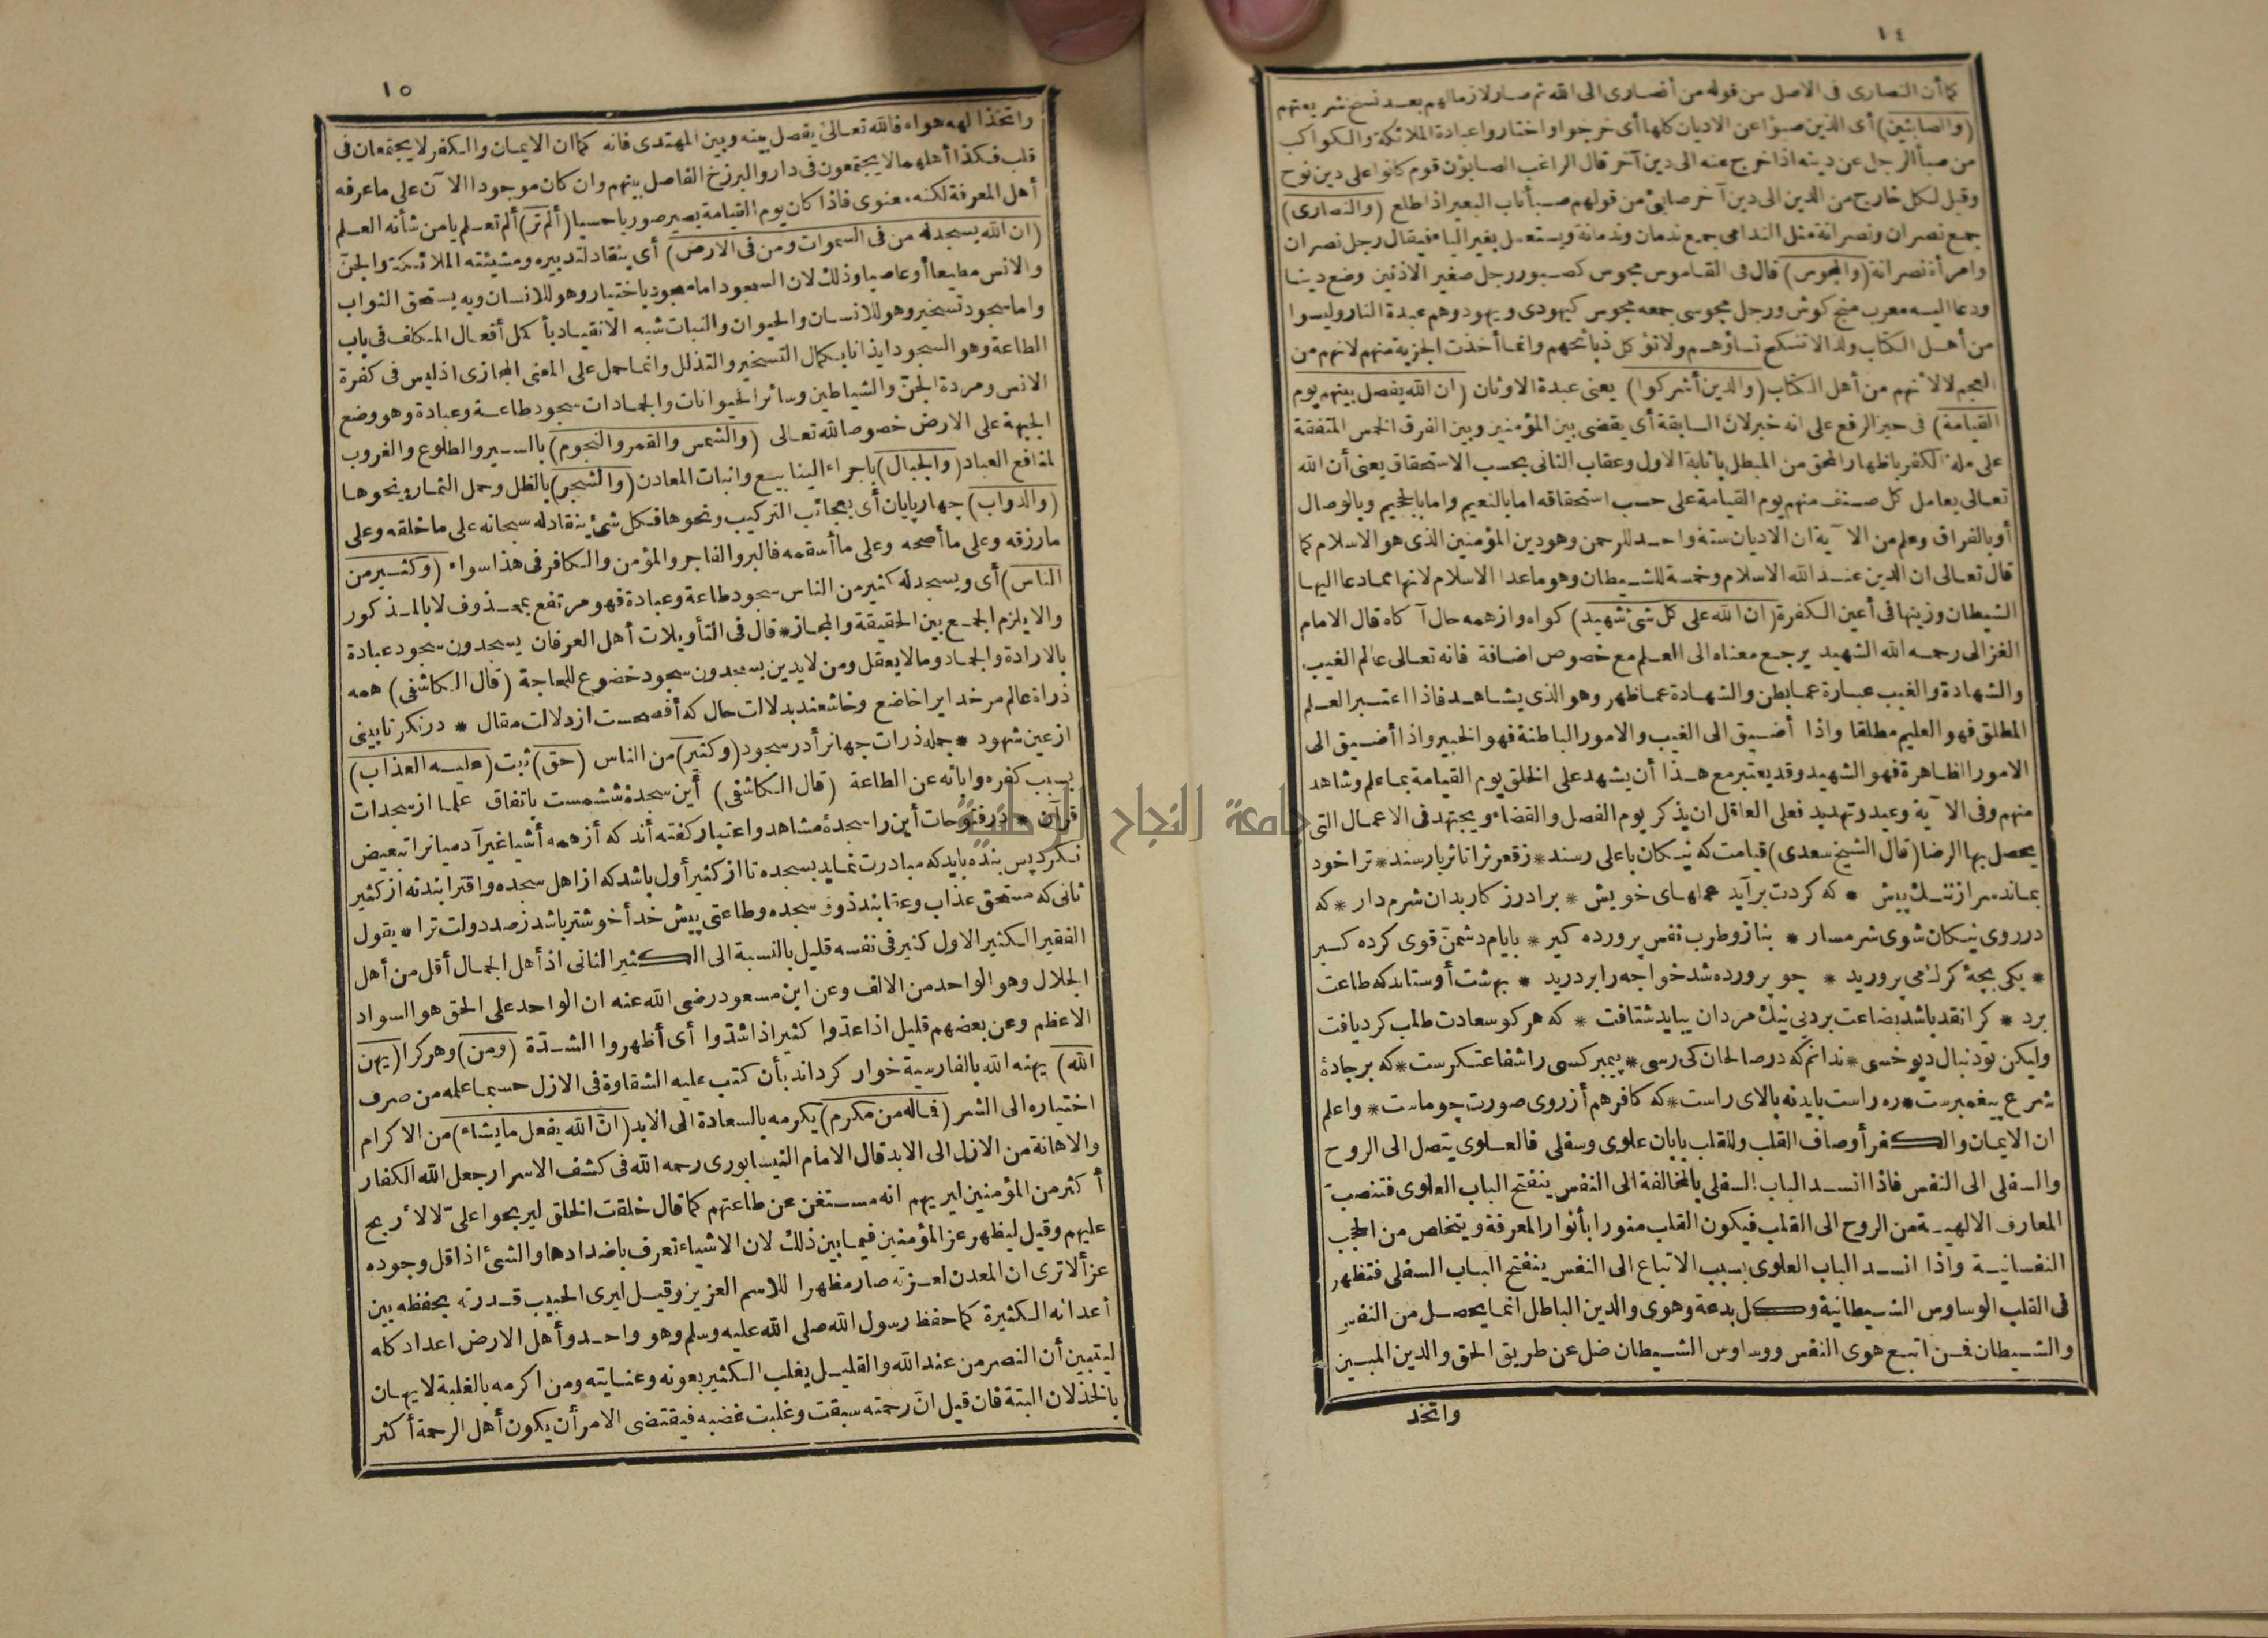 ١٤
كما أن النصارى فى الاصل من قوله من أنصارى الى الله ثم صار لازما لهم بعد نسخ شريعتهم
(والصابئين) أى الذين صبؤا عن الاديان كلها أى خرجوا واختاروا عبادة الملائكة والكواكب
من صبأ الرجل عن دينه اذا خرج عنه الى دين آخر قال الراغب الصابؤن قوم كانوا على دين نوح
وقيل لكل خارج من الدين الى دين آخر صابئ من قولهم صبأ ناب البعير اذا طلع (والنصارى)
جمع نصران ونصرانة مثل الندامى جمع ندمان وندمانة ويستعمل بغير الياء فيقال رجل نصران
وامرأة نصرانة (والمجوس) قال فى القاموس مجوس كصبور رجل صغير الاذنين وضع دينا
ودعا اليه معرب منج كوش ورجل مجوسى جمعه مجوس كيهودى ويهود وهم عبدة النار وليسوا
من أهل الكتاب ولذا لا تنكح نساؤهم ولا تؤكل ذبائحهم وانما أخذت الجزية منهم لانهم من
العجم لا لانهم من أهل الكتاب (والذين أشركوا) يعنى عبدة الاوثان (ان الله يفصل بينهم يوم
القيامة) فى حيز الرفع على انه خبر لانّ السابقة أى يقضى بين المؤمنين وبين الفرق الخمس المتفقة
على ملة الكفر باظهار المحق من المبطل باثابة الاول وعقاب الثانى بحسب الاستحقاق يعنى أن الله
تعالى يعامل كل صنف منهم يوم القيامة على حسب استحقاقه اما بالنعيم واما بالجحيم وبالوصال
أو بالفراق وعلم من الآية ان الاديان ستة واحد للرحمن وهو دين المؤمنين الذى هو الاسلام كما
قال تعالى ان الدين عند الله الاسلام وخمسة للشيطان وهو ما عدا الاسلام لانها مما دعا اليها
الشيطان وزينها فى أعين الكفرة (ان الله على كل شئ شهيد) كواه واز همه حال آكاه قال الامام
الغزالى رحمه الله الشهيد يرجع معناه الى العلم مع خصوص اضافة فانه تعالى عالم الغيب
والشهادة والغيب عبارة عما بطن والشهادة عما ظهر وهو الذى يشاهد فاذا اعتبر العلم
المطلق فهو العليم مطلقا واذا أضيق الى الغيب والامور الباطنة فهو الخبير واذا أضيق الى
الامور الظاهرة فهو الشهيد وقد يعتبر مع هذا أن يشهد على الخلق يوم القيامة بما علم وشاهد
منهم وفى الآية وعيد وتهديد فعلى العاقل ان يذكر يوم الفصل والقضاء ويجتهد فى الاعمال التى
يحصل بها الرضا (قال الشيخ سعدى) قيامت كه نيكان باعلى رسند * زقعر ثرا تا ثريا رسند * ترا خود
بماند سر از ننك پيش * كه كردت بر آيد عملهاى خويش * برادر ز كار بدان شرم دار * كه
در روى نيكان شوى شرمسار * بناز وطرب نفس پرورده كير * بايام دشمن قوى كرده كير
* يكى بچهٔ كرك مى پروريد * چو پرورده شد خواجه را بردريد * بهشت أو ستاند كه طاعت
برد * كرا نقد بايد بضاعت برد * پى نيك مردان ببايد شتافت * كه هر كو سعادت طلب كرد يافت
وليكن تو دنبال ديو خسى * ندانم كه در صالحان كى رسى * پيمبر كسى را شفاعتكرست * كه بر جادهٔ
شرع پيغمبرست * ره راست بايد نه بالاى راست * كه كافر هم أز روى صورت چو ماست * واعلم
ان الايمان والكفر أوصاف القلب وللقلب بابان علوى وسفلى فالعلوى يتصل الى الروح
والسفلى الى النفس فاذا انسد الباب السفلى بالمخالفة الى النفس ينفتح الباب العلوى فتنصبّ
المعارف الالهية من الروح الى القلب فيكون القلب منورا بأنوار المعرفة ويتخلص من الحجب
النفسانية واذا انسد الباب العلوى بسبب الاتباع الى النفس ينفتح الباب السفلى فتظهر
فى القلب الوساوس الشيطانية وكل بدعة وهوى والدين الباطل انما يحصل من النفس
والشيطان فمن اتبع هوى النفس ووساوس الشيطان ضل عن طريق الحق والدين المبين
واتخذ
١٥
واتخذ الهه هواه فالله تعالى يفصل بينه وبين المهتدى فانه كما ان الايمان والكفر لا يجتمعان فى
قلب فكذا أهلهما لا يجتمعون فى دار والبرزخ الفاصل بينهم وان كان موجودا الآن على ما عرفه
أهل المعرفة لكنه معنوى فاذا كان يوم القيامة يصير صوريا حسيا (ألم تر) ألم تعلم يا من شأنه العلم
(ان الله يسجد له من فى السموات ومن فى الارض) أى ينقاد لتدبيره ومشيئته الملائكة والجنّ
والانس مطيعا أو عاصيا وذلك لان السجود اما سجود باختيار وهو للانسان وبه يستحق الثواب
واما سجود تسخير وهو للانسان والحيوان والنبات شبه الانقياد بأكمل أفعال المكلف فى باب
الطاعة وهو السجود ايذانا بكمال التسخير والتذلل وانما حمل على المعنى المجازى اذ ليس فى كفرة
الانس ومردة الجنّ والشياطين وسائر الحيوانات والجمادات سجود طاعة وعبادة وهو وضع
الجبهة على الارض خصوصا لله تعالى (والشمس والقمر والنجوم) بالسير والطلوع والغروب
لمنافع العباد (والجبال) باجراء الينابيع وانبات المعادن (والشجر) بالظل وحمل الثمار ونحوها
(والدواب) چهار پايان أى بعجائب التركيب ونحوها فكل شئ ينقاد له سبحانه على ما خلقه وعلى
ما رزقه وعلى ما أصحه وعلى ما أسقمه فالبر والفاجر والمؤمن والكافر فى هذا سواء (وكثير من
الناس) أى ويسجد له كثير من الناس سجود طاعة وعبادة فهو مرتفع بمحذوف لا بالمذكور
والا يلزم الجمع بين الحقيقة والمجاز * قال فى التأويلات أهل العرفان يسجدون سجود عبادة
بالارادة والجماد وما لا يعقل ومن لا يدين يسجدون سجود خضوع للحاجة (قال الكاشفى) همه
ذراة عالم مر خدا يرا خاضع وخاشعند بدلالت حال كه أفصحست از دلالت مقال * درنكر تا بينى
از عين شهود * جمله ذرات جهانرا در سجود (وكثير) من الناس (حق) ثبت (عليه العذاب)
بسبب كفره وابائه عن الطاعة (قال الكاشفى) أين سجدهٔ ششمست باتفاق علما از سجدات
قرآن * در فتوحات أين را سجدهٔ مشاهد واعتبار كفته أند كه أز همه أشيا غير آدميانرا تبعيض
نكرد پس بنده بايد كه مبادرت نمايد بسجده تا از كثير أول باشد كه از اهل سجده واقترابند نه از كثير
ثانى كه مستحق عذاب وعتابند ذوق سجده وطاعتى پيش خدا خوشتر باشد ز صد دولت ترا * يقول
الفقير الكثير الاول كثير فى نفسه قليل بالنسبة الى الكثير الثانى اذ أهل الجمال أقل من أهل
الجلال وهو الواحد من الالف وعن ابن مسعود رضى الله عنه ان الواحد على الحق هو السواد
الاعظم وعن بعضهم قليل اذا عدّوا كثير اذا شدّوا أى أظهروا الشدّة (ومن) وهركرا (يهن
الله) يهنه الله بالفارسية خوار كرداند بأن كتب عليه الشقاوة فى الازل حسبما علمه من صرف
اختياره الى الشر (فما له من مكرم) يكرمه بالسعادة الى الابد (ان الله يفعل ما يشاء) من الاكرام
والاهانة من الازل الى الابد قال الامام النيسابورى رحمه الله فى كشف الاسرار جعل الله الكفار
أكثر من المؤمنين ليريهم انه مستغن عن طاعتهم كما قال خلقت الخلق ليربحوا علىّ لا لأربح
عليهم وقيل ليظهر عز المؤمنين فيما بين ذلك لان الاشياء تعرف باضدادها والشئ اذا قل وجوده
عز ألا ترى ان المعدن لعزته صار مظهرا للاسم العزيز وقيل ليرى الحبيب قدرته بحفظه بين
أعدائه الكثيرة كما حفظ رسول الله صلى الله عليه وسلم وهو واحد وأهل الارض اعداد كله
ليتبين أن النصر من عند الله والقليل يغلب الكثير بعونه وعنايته ومن اكرمه بالغلبة لا يهان
بالخذلان البتة فان قيل انّ رحمته سبقت وغلبت غضبه فيقتضى الامر أن يكون أهل الرحمة أكثر
جامعة النجاح الوطنية